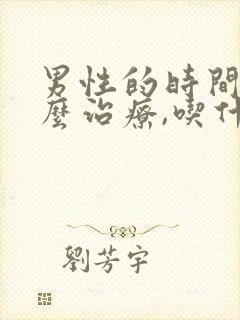 男性的時間
麼治療,喫什
劉芳宇